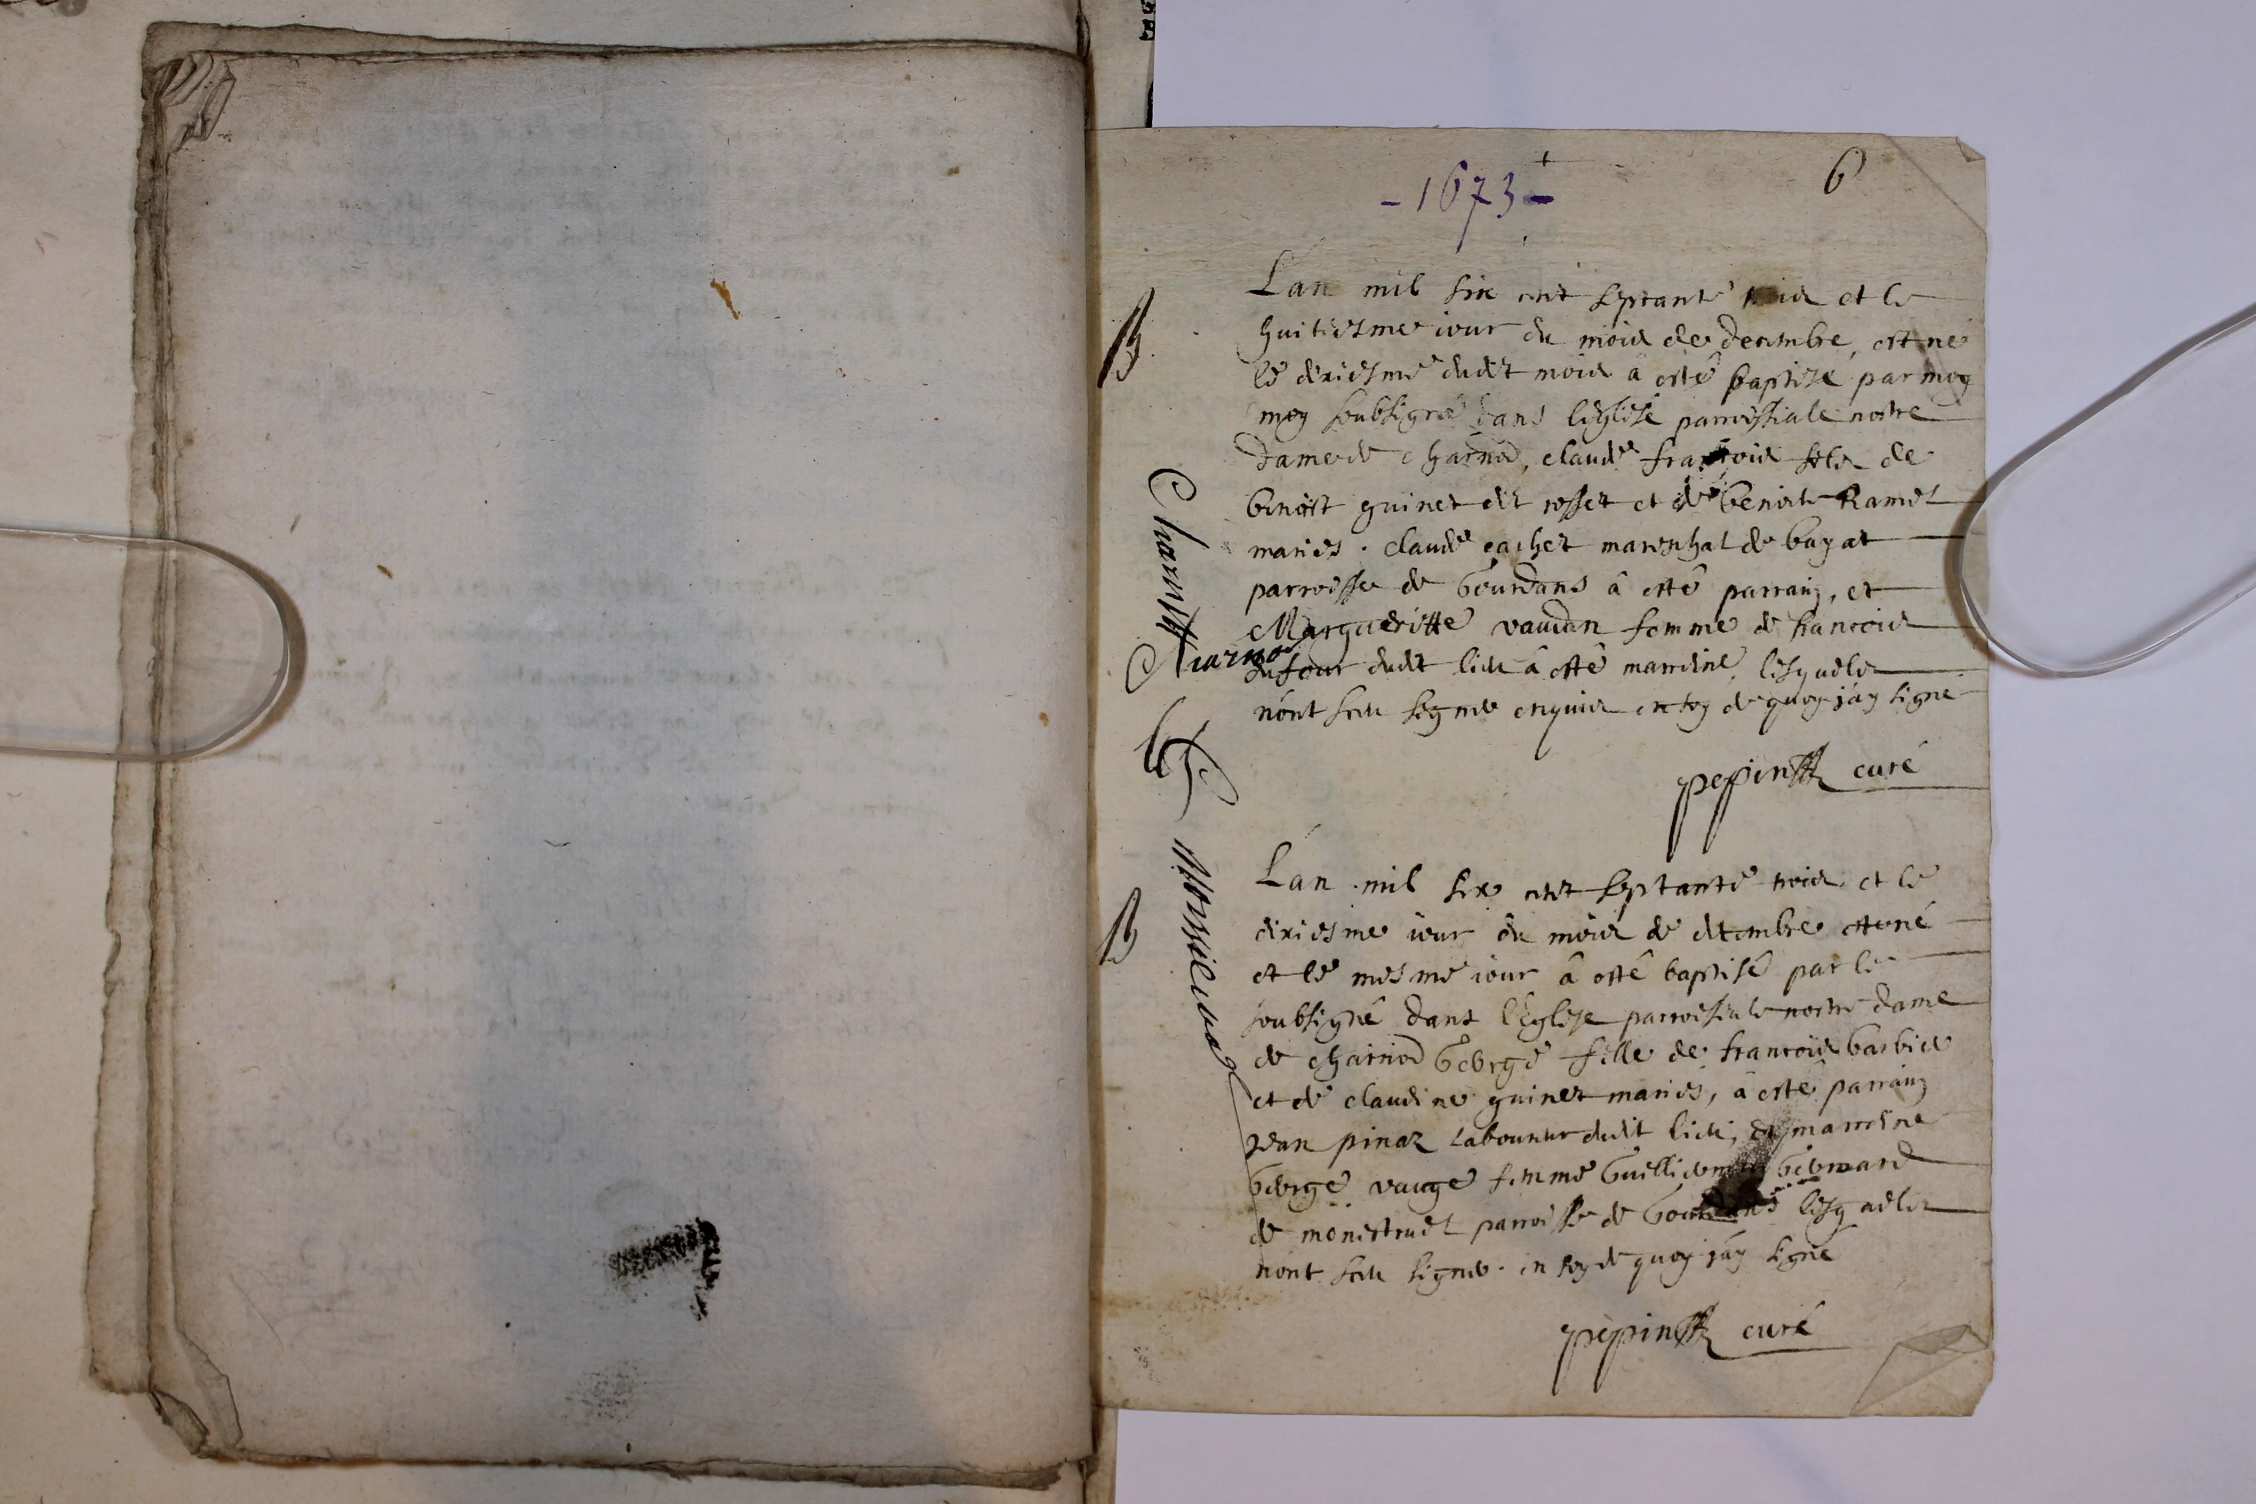 - 1673 -
6
B
Lan mil six cent septante trois et le
huitiesme iour du mois de decembre, est ne
le dixiesme dudit mois â esté baptisé par moy
moy soubsigné dans leglise parroissiale nostre
dame de charnod, claude francois fils de
benoist guinet dit rosset et de benoiste Ramel
mariés. claude pachet mareschal de bayat
parroisse de Gourdans â esté parrain, et
Margueritte vaudan femme de francois
dufour dudit lieu â esté marreine, lesquels
nont sceu signer enquis en foy de quoy jay signé
pepin curé
Charnod
Charnod
Monsieur
B
Lan mil six cent septante trois et le
dixiesme iour du mois de decembre est né
et le mesme iour â esté baptisé par le
soubsigné dans leglise parroissiale nostre dame
de charnod George fille de francois barbier
et de claudine guinet mariés, â esté parrain
Jean pinaz laboureur dudit lieu, et marreine
George vauge femme Guilliermoz
de monestruel parroisse de Gourdans lesquels
nont sceu signer. en foy de quoy jay signé
pepin curé